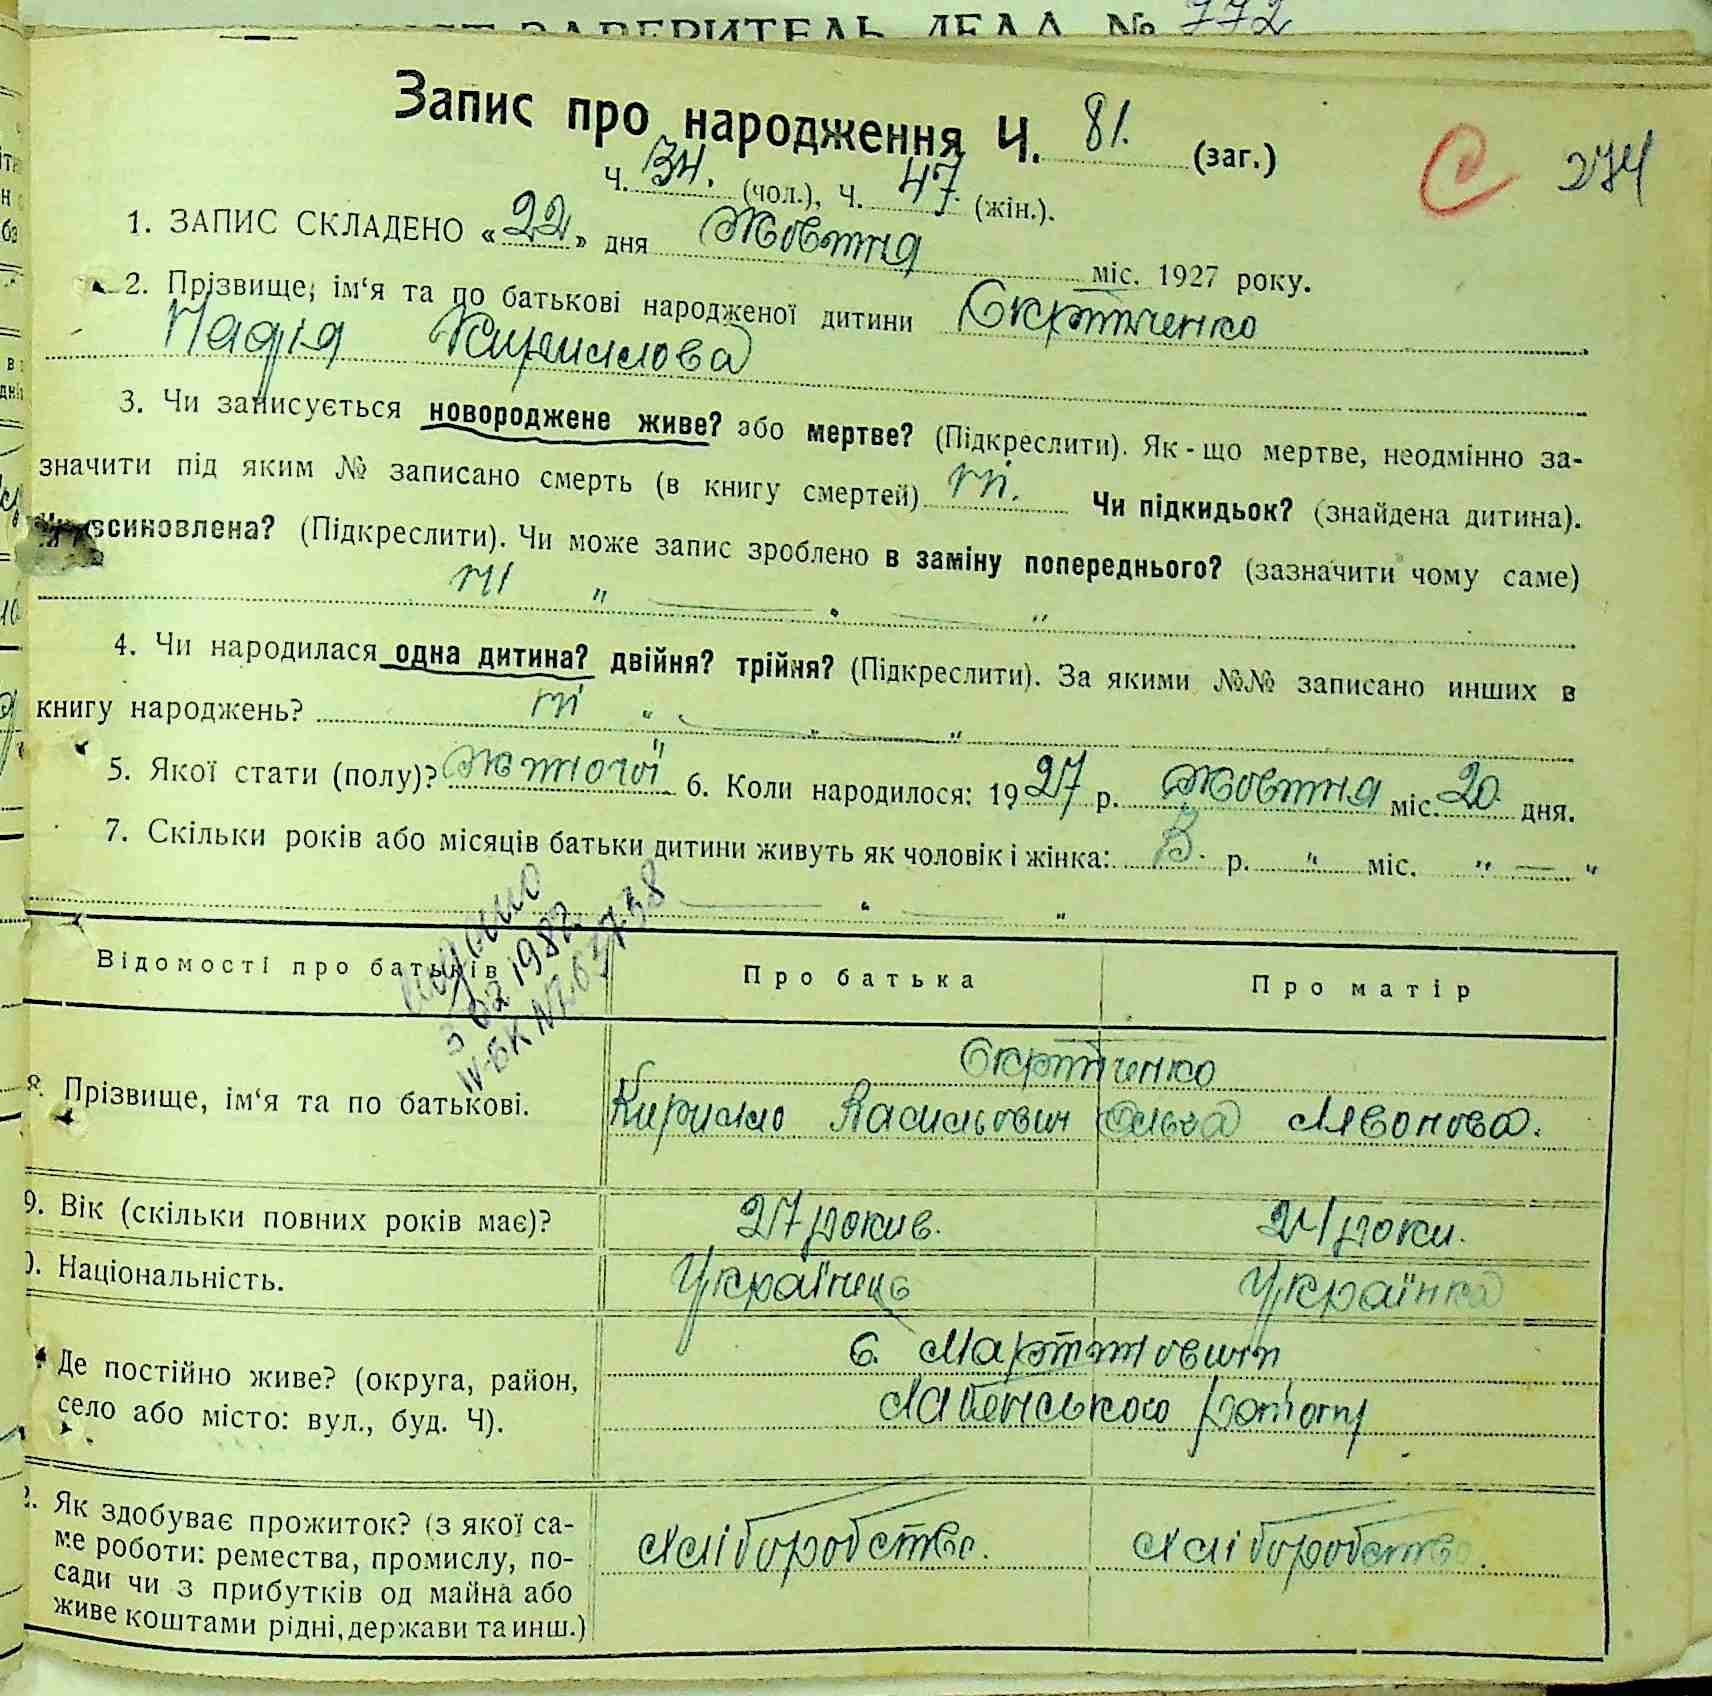 ЗАВЕРИТЕЛЬ ДЕЛА № 772
Запис про народження Ч. 81. (заг.)
274
Ч. 34. (чол.), Ч. 47. (жін.).
1. ЗАПИС СКЛАДЕНО «22» дня Жовтня міс. 1927 року.
2. Прізвище, ім‘я та по батькові народженої дитини Скрипченко
Надія Кирилова
3. Чи записується новороджене живе? або мертве? (Підкреслити). Як-що мертве, неодмінно за-
значити під яким № записано смерть (в книгу смертей) ні. Чи підкидьок? (знайдена дитина).
всиновлена? (Підкреслити). Чи може запис зроблено в заміну попереднього? (зазначити чому саме)
ні " — " — "
4. Чи народилася одна дитина? двійня? трійня? (Підкреслити). За якими №№ записано инших в
книгу народжень? ні " — " — "
5. Якої стати (полу)? Жіночої 6. Коли народилося: 1927 р. Жовтня міс. 20 дня.
7. Скільки років або місяців батьки дитини живуть як чоловік і жінка: 3. р. " міс. " — "
— " — "
Видано
3 02 1982
IV-БК № 637738
Відомості про батьків Про батька Про матір
Скрипченко
8. Прізвище, ім‘я та по батькові. Кирило Васильович Ольга Лявонова.
9. Вік (скільки повних років має)? 27 років. 24 роки.
0. Національність. Українець Українка
с. Мартиновит
Де постійно живе? (округа, район,
село або місто: вул., буд. Ч). району
2. Як здобуває прожиток? (з якої са-
ме роботи: ремества, промислу, по-
сади чи з прибутків од майна або
живе коштами рідні, держави та инш.)
хліборобство. хліборобство.